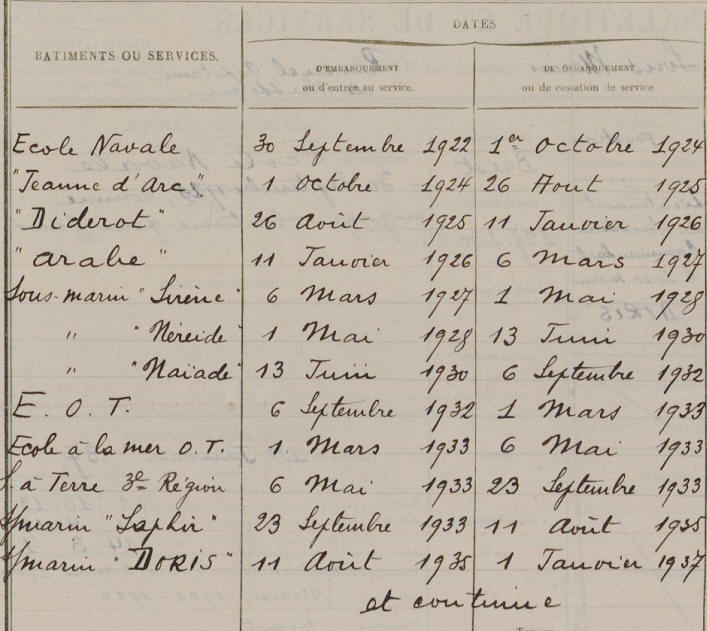 DATES
BATIMENTS OU SERVICES. D'EMBARQUEMENT DE DÉBARQUEMENT
ou d'entrée au service. ou de cessation de service
Ecole Navale 30 Septembre 1922 1er Octobre 1924
"Jeanne d'Arc" 1 Octobre 1924 26 Aout 1925
"Diderot" 26 Août 1925 11 Janvier 1926
"Arabe" 11 Janvier 1926 6 Mars 1927
Sous-marin "Sirène" 6 Mars 1927 1 Mai 1928
" "Néreide" 1 Mai 1928 13 Juin 1930
" "Naïade" 13 Juin 1930 6 Septembre 1932
E. O. T. 6 Septembre 1932 1 Mars 1933
Ecole à la mer O.T. 1 Mars 1933 6 Mai 1933
S. à Terre 3e Région 6 Mai 1933 23 Septembre 1933
S/marin "Saphir" 23 Septembre 1933 11 Août 1935
S/marin "DORIS" 11 Août 1935 1 Janvier 1937
et continue